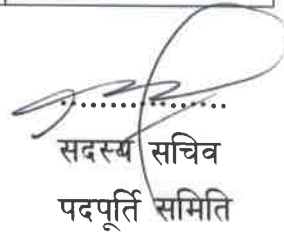 ..................
सदस्य सचिव
पदपूर्ति समिति